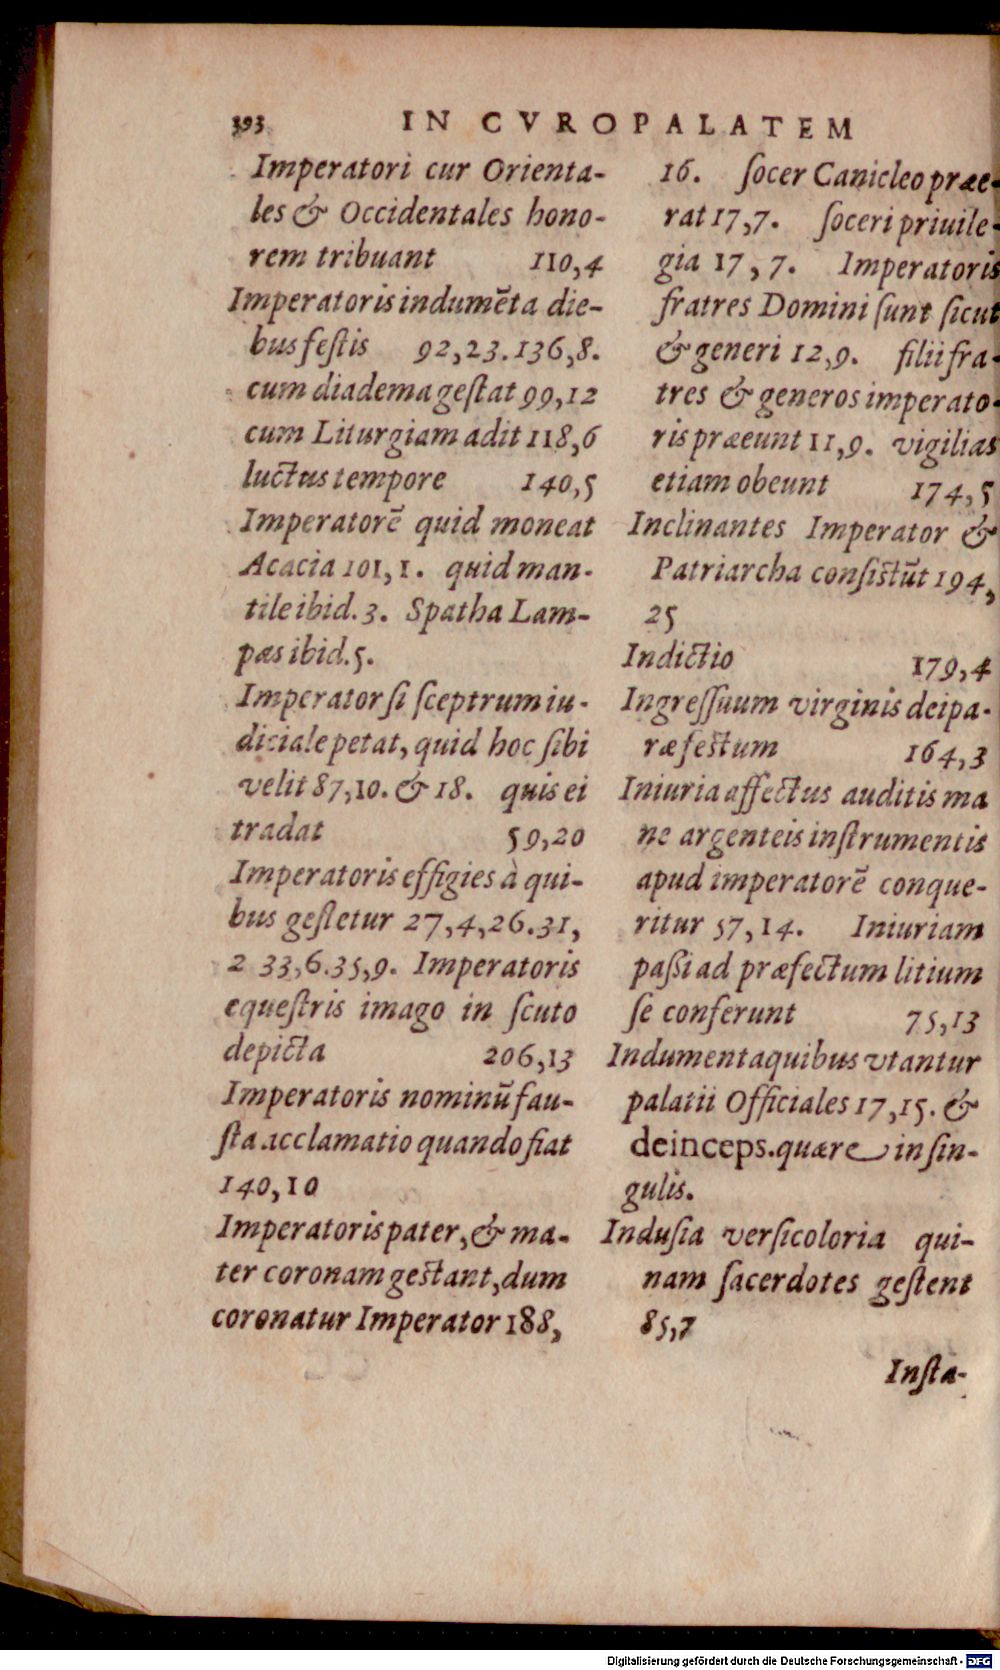 393 IN CVROPALATEM
Imperatori cur Orienta-
les & Occidentales hono-
rem tribuant 110,4
Imperatoris indumẽta die-
bus feſtis 92,23.136,8.
cum diadema geſtat 99,12
cum Liturgiam adit 118,6
luctus tempore 140,5
Imperatorẽ quid moneat
Acacia 101,1. quid man-
tile ibid.3. Spatha Lam-
pas ibid.5.
Imperator ſi ſceptrum iu-
diciale petat, quid hoc ſibi
velit 87,10. & 18. quis ei
tradat 59,20
Imperatoris effigies à qui-
bus geſtetur 27,4,26.31,
2 33,6.35,9. Imperatoris
equeſtris imago in ſcuto
depicta 206,13
Imperatoris nominũ fau-
ſta acclamatio quando fiat
140,10
Imperatoris pater, & ma-
ter coronam geſtant, dum
coronatur Imperator 188,
16. ſocer Canicleo præe-
rat 17,7. ſoceri priuile-
gia 17,7. Imperatoris
fratres Domini ſunt ſicut
& generi 12,9. filii fra-
tres & generos imperato-
ris præeunt 11,9. vigilias
etiam obeunt 174,5
Inclinantes Imperator &
Patriarcha conſiſtũt 194,
25
Indictio 179,4
Ingreſſuum virginis deipa-
ræ feſtum 164,3
Iniuria affectus auditis ma
ne argenteis inſtrumentis
apud imperatorẽ conque-
ritur 57,14. Iniuriam
paßi ad præfectum litium
ſe conferunt 75,13
Indumenta quibus vtantur
palatii Officiales 17,15. &
deinceps. quære in ſin-
gulis.
Induſia verſicoloria qui-
nam ſacerdotes geſtent
85,7
Inſta-
Digitalisierung gefördert durch die Deutsche Forschungsgemeinschaft - DFG